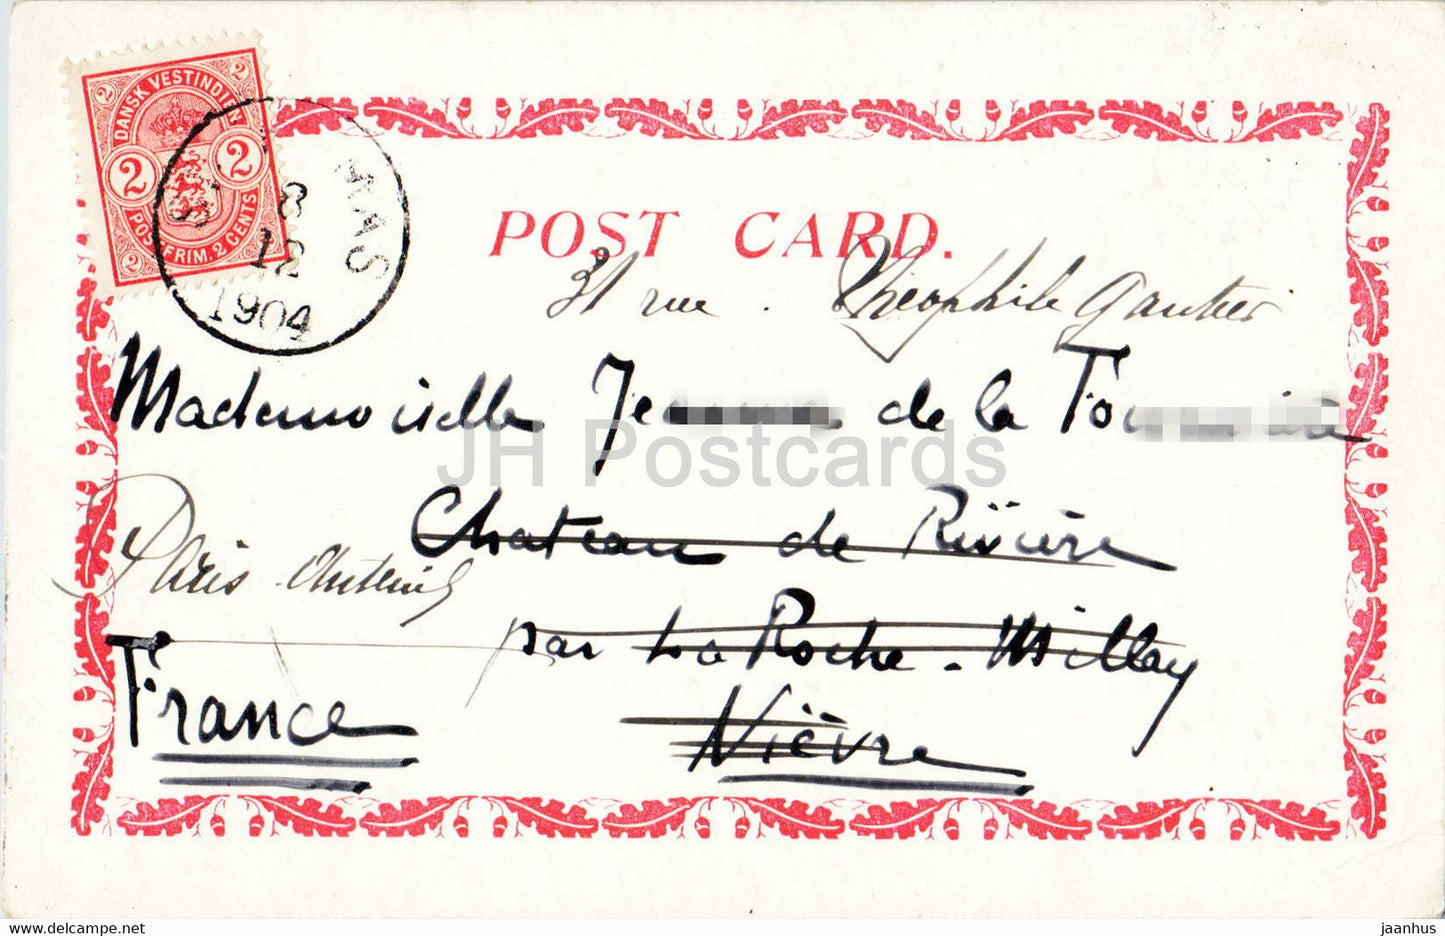 DANSK VESTINDIEN
2 2 2
2 2
POSTFRIM. 2 CENTS
ST. MAS
8
12
1904
POST CARD.
31 rue. Théophile Gautier
Mademoiselle de la
JH Postcards
Chateau de Rivière
Paris Auteuil
par La Roche-Millay
France
Nièvre
www.delcampe.net
jaanhus